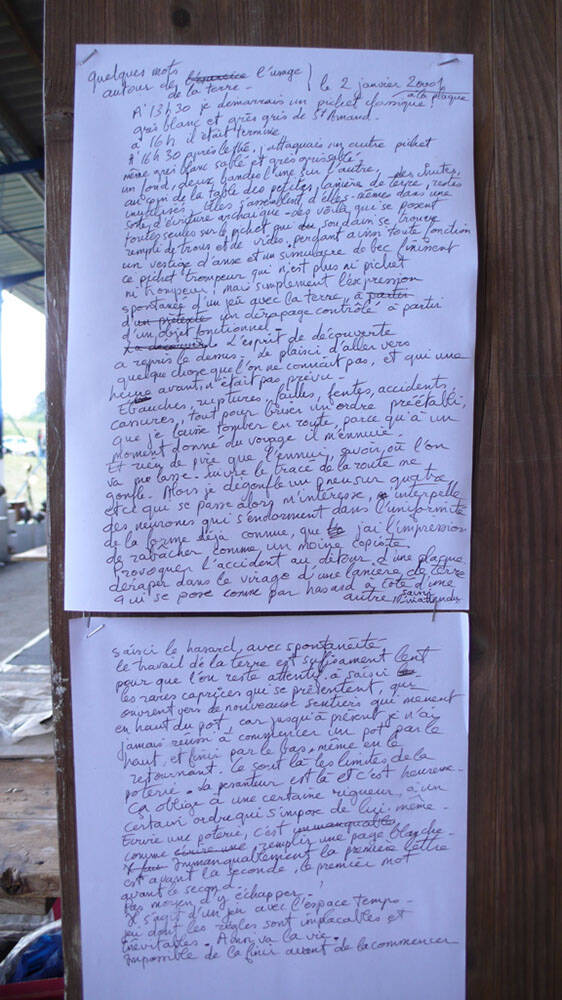 quelques mots
autour de l'exercice l'usage
de la terre - le 2 janvier
à la plaque
A 13h30 je démarrais un pichet classique,
grès blanc et grès gris de St Amand.
à 16h il était terminé
A 16h30 après le thé, j'attaquais un autre pichet
même grès blanc sablé et grès gris sablé.
un fond, deux bandes l'une sur l'autre,
au coin de la table des petites lanières de terre, restes
inutilisés. Elles s'assemblent d'elles-mêmes dans une
sorte d'écriture archaïque - des voiles qui se posent
toutes seules sur le pichet qui soudain se trouve
rempli de trous et de vides, perdant ainsi toute fonction
un vestige d'anse et un simulacre de bec finissent
ce pichet trompeur qui n'est plus ni pichet
ni trompeur, mais simplement l'expression
spontanée d'un jeu avec la terre, à partir
d'un prétexte un dérapage contrôlé à partir
d'un objet fonctionnel -
L'esprit de découverte
a repris le dessus. Le plaisir d'aller vers
quelque chose que l'on ne connait pas, et qui une
heure avant, n'était pas prévu -
Ebauches, ruptures, failles, fentes, accidents,
cassures, tout pour briser un ordre préétabli,
que je laisse tomber en route, parce qu'à un
moment donné du voyage il m'ennuie -
Et rien de pire que l'ennui, savoir où l'on
va me lasse. suivre le tracé de la route me
gonfle. Alors je dégonfle un pneu sur quatre
et ce qui se passe alors m'intéresse, interpelle
des neurones qui s'endorment dans l'uniformité
de la forme déjà connue, que j'ai l'impression
de rabâcher comme un moine copiste.
Provoquer l'accident au détour d'une plaque
déraper dans le virage d'une lanière de terre
qui se pose comme par hasard à côté d'une
autre saisir
saisir le hasard, avec spontanéité
le travail de la terre est suffisament lent
pour que l'on reste attentif à saisir
les rares caprices qui se présentent, qui
ouvrent vers de nouveaux sentiers qui mènent
en haut du pot, car jusqu'à présent je n'ai
jamais réussi à commencer un pot par le
haut, et finir par le bas, même en le
retournant. Ce sont là les limites de la
poterie. La pesanteur est là et c'est heureux -
Ça oblige à une certaine rigueur, à un
certain ordre qui s'impose de lui-même -
Ecrire une poterie, c'est immanquable
comme écrire une remplir une page blanche -
Immanquablement la première lettre
est avant la seconde, le premier mot
avant le second -
Pas moyen d'y échapper !
Il s'agit d'un jeu avec l'espace temps -
jeu dont les règles sont implacables et
inévitables. Ainsi va la vie -
Impossible de la finir avant de la commencer